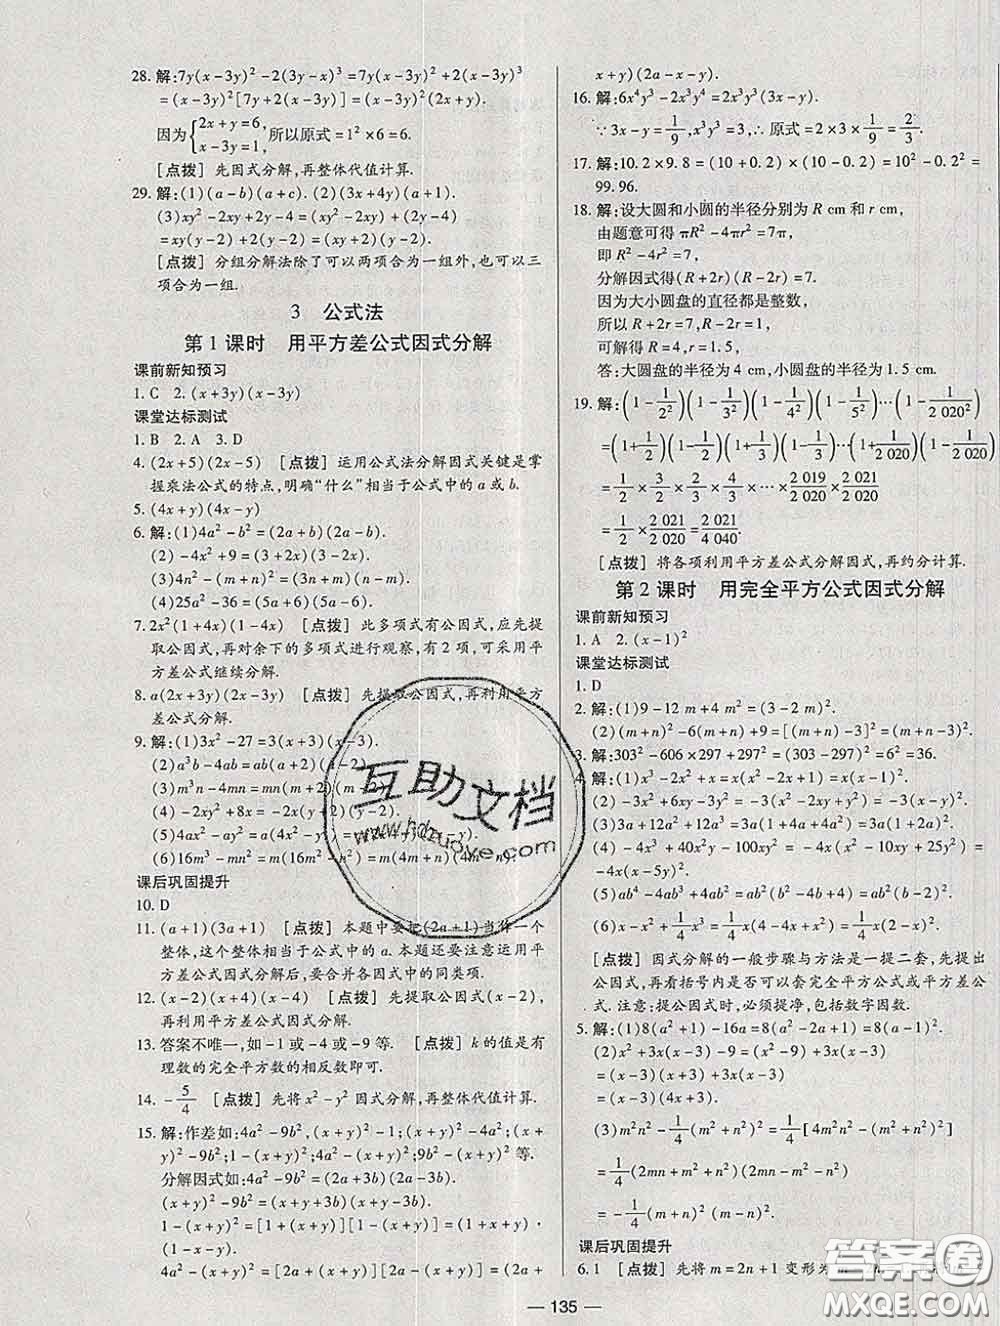 28. 解:7y(x-3y)²-2(3y-x)³=7y(x-3y)²+2(x-3y)³
=(x-3y)²[7y+2(x-3y)]=(x-3y)²(2x+y).
因为{2x+y=6, x-3y=1,所以原式=1²×6=6.
[点拨] 先因式分解,再整体代值计算.
29. 解:(1)(a-b)(a+c). (2)(3x+4y)(a+1).
(3)xy²-2xy+2y-4=(xy²-2xy)+(2y-4)
=xy(y-2)+2(y-2)=(xy+2)(y-2).
[点拨] 分组分解法除了可以两项合为一组外,也可以三
项合为一组.
3 公式法
第1课时 用平方差公式因式分解
课前新知预习
1. C 2. (x+3y)(x-3y)
课堂达标测试
1. B 2. A 3. D
4. (2x+5)(2x-5) [点拨] 运用公式法分解因式关键是掌
握乘法公式的特点,明确“什么”相当于公式中的a或b.
5. (4x+y)(4x-y)
6. 解:(1)4a²-b²=(2a+b)(2a-b).
(2)-4x²+9=(3+2x)(3-2x).
(3)4n²-(m+n)²=(m+3n)(n-m).
(4)25a²-36=(5a+6)(5a-6).
7. 2x²(1+4x)(1-4x) [点拨] 此多项式有公因式,应先提
取公因式,再对余下的多项式进行观察,有2项,可采用平
方差公式继续分解.
8. a(2x+3y)(2x-3y) [点拨] 先提取公因式,再利用平方
差公式分解.
9. 解:(1)3x²-27=3(x+3)(x-3).
(2)a³b-4ab=ab(a+2)(a-2).
(3)m³n-4mn=mn(m+2)(m-2).
(4)-2xy²+8x=-2x(y+2)(y-2).
(5)4ax²-ay²=a(4x²-y²)=a(2x+y)(2x-y).
(6)16m³-mn²=m(16m²-n²)=m(4m+n)(4m-n).
课后巩固提升
10. D
11. (a+1)(3a+1) [点拨] 本题中要把(2a+1)当作一个
整体,这个整体相当于公式中的a.本题还要注意运用平
方差公式因式分解后,要合并各因式中的同类项.
12. (x-2)(x+4)(x-4) [点拨] 先提取公因式(x-2),
再利用平方差公式因式分解.
13. 答案不唯一,如-1或-4或-9等. [点拨] k的值是有
理数的完全平方数的相反数即可.
14. -5/4 [点拨] 先将x²-y²因式分解,再整体代值计算.
15. 解:作差如:4a²-9b²,(x+y)²-1;(x+y)²-4a²;(x+
y)²-9b²;1-(x+y)²;4a²-(x+y)²;9b²-(x+y)²等.
分解因式如:4a²-9b²=(2a+3b)(2a-3b).
(x+y)²-9b²=(x+y+3b)(x+y-3b).
1-(x+y)²=[1+(x+y)][1-(x+y)]=(1+x+y)·
(1-x-y).
4a²-(x+y)²=[2a+(x+y)][2a-(x+y)]=(2a+
x+y)(2a-x-y).
16. 解:6x⁴y³-2x³y⁴=2x³y³(3x-y).
∵3x-y=1/9,x³y³=3,∴原式=2×3×1/9=2/3.
17. 解:10.2×9.8=(10+0.2)×(10-0.2)=10²-0.2²=
99.96.
18. 解:设大圆和小圆的半径分别为R cm和r cm,
由题意可得πR²-4πr²=7π,
即R²-4r²=7,
分解因式得(R+2r)(R-2r)=7.
因为大小圆盘的直径都是整数,
所以R+2r=7,R-2r=1,
可解得R=4,r=1.5,
答:大圆盘的半径为4 cm,小圆盘的半径为1.5 cm.
19. 解:(1-1/2²)(1-1/3²)(1-1/4²)(1-1/5²)…(1-1/2 020²)
=(1+1/2)(1-1/2)(1+1/3)(1-1/3)…(1+1/2 020)(1-1/2 020)
=1/2×3/2×2/3×4/3×…×2 019/2 020×2 021/2 020
=1/2×2 021/2 020=2 021/4 040.
[点拨] 将各项利用平方差公式分解因式,再约分计算.
第2课时 用完全平方公式因式分解
课前新知预习
1. A 2. (x-1)²
课堂达标测试
1. D
2. 解:(1)9-12m+4m²=(3-2m)².
(2)(m+n)²-6(m+n)+9=[(m+n)-3]²=(m+n-3)².
3. 解:303²-606×297+297²=(303-297)²=6²=36.
4. 解:(1)x³-2x²+x=x(x²-2x+1)=x(x-1)².
(2)-3x²+6xy-3y²=-3(x²-2xy+y²)=-3(x-y)².
(3)3a+12a²+12a³=3a(1+4a+4a²)=3a(1+2a)².
(4)-4x³+40x²y-100xy²=-4x(x²-10xy+25y²)=
-4x(x-5y)².
(5)ab⁴-4ab³+4ab²=ab²(b²-4b+4)=ab²(b-2)².
(6)x-x²+1/4x³=1/4x(4-4x+x²)=1/4x(2-x)².
[点拨] 因式分解的一般步骤与方法是一提二套,先提出
公因式,再看括号内是否可以套完全平方公式或平方差公
式.注意:提公因式时,必须提净,包括数字因数.
5. 解:(1)8(a²+1)-16a=8(a²-2a+1)=8(a-1)².
(2)x²+3x(x-3)-9=(x²-9)+3x(x-3)
=(x-3)(x+3)+3x(x-3)=(x-3)(x+3+3x)
=(x-3)(4x+3).
(3)m²n²-1/4(m²+n²)²=1/4[4m²n²-(m²+n²)²]
=1/4(2mn+m²+n²)(2mn-m²-n²)
=-1/4(m+n)²(m-n)².
课后巩固提升
6. 1 [点拨] 先将m=2n+1变形为
— 135 —
互助文档
www.hdzuoye.com
答案圈
MXQE.COM